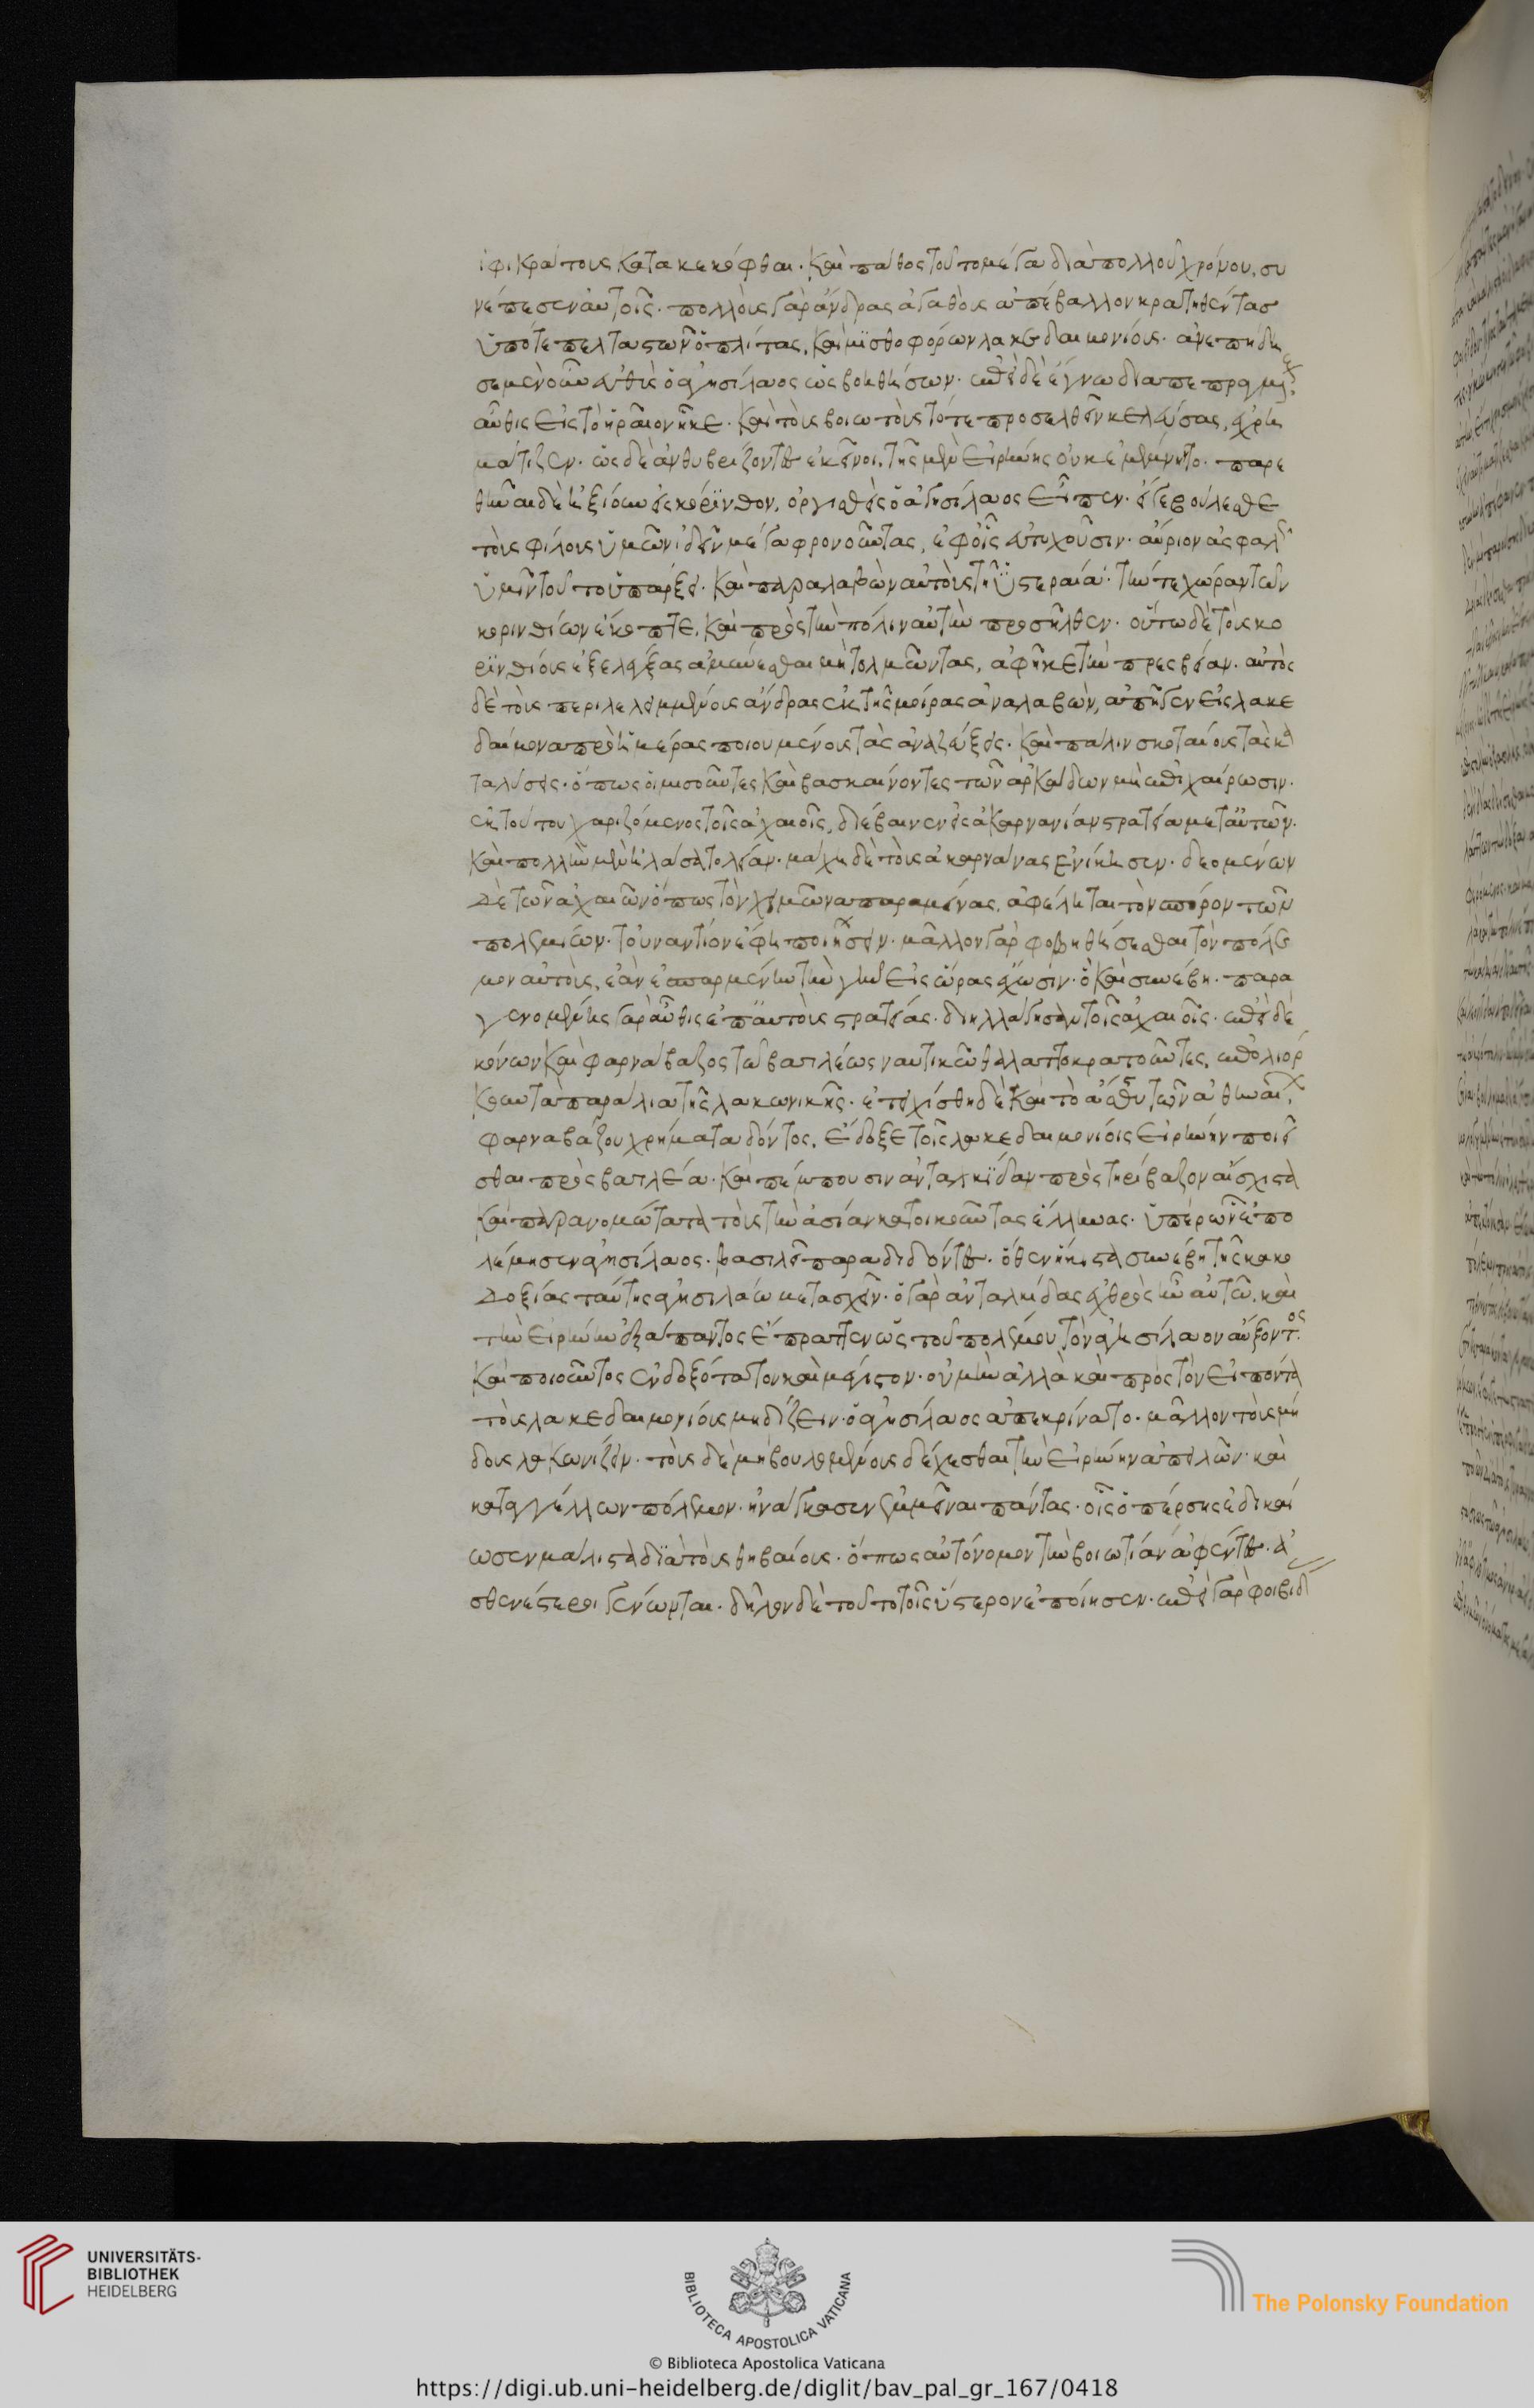 ἰφικράτους κατακεκόφθαι· καὶ πάθος τοῦτο μέγα διὰ πολλοῦ χρόνου, συ
νέπεσεν αὐτοῖς· πολλοὺς γὰρ ἄνδρας ἀγαθοὺς ἀπέβαλλον κρατηθέντας
ὑπό τε πελταστῶν ὁπλίτας, καὶ μισθοφόρων λακεδαιμονίους· ἀνεπήδη
σε μὲν οὖν εὐθὺς ὁ ἀγησίλαος ὡς βοηθήσων· ἐπεὶ δὲ ἔγνω διαπεπραγμένους
αὖθις εἰς τὸ ἡραῖον ἧκε· καὶ τοὺς βοιωτοὺς τότε προσελθεῖν κελεύσας, ἐχρη
μάτιζεν· ὡς δὲ ἀνθυβρίζοντες ἐκεῖνοι, τῆς μὲν εἰρήνης οὐκ ἐμέμνηντο· παρε
θῆναι δὲ ἠξίουν εἰς κόρινθον, ὀργισθεὶς ὁ ἀγησίλαος εἶπεν· εἴγε βούλεσθε
τοὺς φίλους ὑμῶν ἰδεῖν μέγα φρονοῦντας, ἐφ' οἷς εὐτυχοῦσιν· αὔριον ἀσφαλῶς
ὑμῖν τοῦτο ὑπάρξει· καὶ παραλαβὼν αὐτοὺς τῇ ὑστεραίᾳ· τήν τε χώραν τῶν
κορινθίων ἔκοπτε, καὶ πρὸς τὴν πόλιν αὐτὴν προσῆλθεν· οὕτω δὲ τοὺς κο
ρινθίους ἐξελέγξας ἀμύνεσθαι μὴ τολμῶντας, ἀφῆκε τὴν πρεσβείαν· αὐτὸς
δὲ τοὺς περιλελειμμένους ἄνδρας ἐκ τῆς μοίρας ἀναλαβὼν, ἀπῆγεν εἰς λακε
δαίμονα πρὸ ἡμέρας ποιούμενος τὰς ἀναζεύξεις· καὶ πάλιν σκοταίους τὰς κα
ταλύσεις· ὅπως οἱ μισοῦντες καὶ βασκαίνοντες τῶν ἀρκάδων μὴ ἐπιχαίρωσιν·
ἐκ τούτου χαριζόμενος τοῖς ἀχαιοῖς, διέβαινεν εἰς ἀκαρνανίαν στρατείᾳ μετ' αὐτῶν·
καὶ πολλὴν μὲν ἠλάσατο λείαν· μάχῃ δὲ τοὺς ἀκαρνᾶνας ἐνίκησεν· δεομένων
δὲ τῶν ἀχαιῶν ὅπως τὸν χειμῶνα παραμείνας, ἀφέληται τὸν σπόρον τῶν
πολεμίων· τοὐναντίον ἔφη ποιήσειν· μᾶλλον γὰρ φοβηθήσεσθαι τὸν πόλε
μον αὐτοὺς, ἐὰν ἐσπαρμένην τὴν γῆν εἰς ὥρας ἔχωσιν· ὃ καὶ συνέβη· παρα
γενομένης γὰρ αὖθις ἐπ' αὐτοὺς στρατείας· διηλλάγησαν τοῖς ἀχαιοῖς· ἐπεὶ δὲ
κόνων καὶ φαρνάβαζος τῷ βασιλέως ναυτικῷ θαλαττοκρατοῦντες, ἐπολιόρ
κουν τὰ παράλια τῆς λακωνικῆς· ἐτειχίσθη δὲ καὶ τὸ ἄστυ τῶν ἀθηναίων,
φαρναβάζου χρήματα δόντος, ἔδοξε τοῖς λακεδαιμονίοις εἰρήνην ποιεῖ
σθαι πρὸς βασιλέα· καὶ πέμπουσιν ἀνταλκίδαν πρὸς τηρίβαζον αἴσχιστα
καὶ παρανομώτατα τοὺς τὴν ἀσίαν κατοικοῦντας ἕλληνας· ὑπὲρ ὧν ἐπο
λέμησεν ἀγησίλαος· βασιλεῖ παραδιδόντες· ὅθεν ἥκιστα συνέβη τῆς κακο
δοξίας ταύτης ἀγησιλάῳ μετασχεῖν· ὁ γὰρ ἀνταλκίδας ἐχθρὸς ἦν αὐτῷ, καὶ
τὴν εἰρήνην ἐξ ἅπαντος ἔπραττεν ὡς τοῦ πολέμου τὸν ἀγησίλαον αὔξοντος
καὶ ποιοῦντος ἐνδοξότατον καὶ μέγιστον· οὐ μὴν ἀλλὰ καὶ πρὸς τὸν εἰπόντα
τοὺς λακεδαιμονίους μηδίζειν· ὁ ἀγησίλαος ἀπεκρίνατο· μᾶλλον τοὺς μή
δους λακωνίζειν· τοῖς δὲ μὴ βουλομένοις δέχεσθαι τὴν εἰρήνην ἀπειλῶν· καὶ
καταγγέλλων πόλεμον· ἠνάγκασεν ἐμμένειν πάντας· οἷς ὁ πέρσης ἐδικαί
ωσεν μάλιστα διὰ τοὺς θηβαίους· ὅπως αὐτόνομον τὴν βοιωτίαν ἀφέντες· ἀ
σθενέστεροι γένωνται· δῆλον δὲ τοῦτο τοῖς ὕστερον ἐποίησεν· ἐπεὶ γὰρ φοιβίδ
UNIVERSITÄTS-
BIBLIOTHEK
HEIDELBERG
BIBLIOTECA APOSTOLICA VATICANA
The Polonsky Foundation
© Biblioteca Apostolica Vaticana
https://digi.ub.uni-heidelberg.de/diglit/bav_pal_gr_167/0418